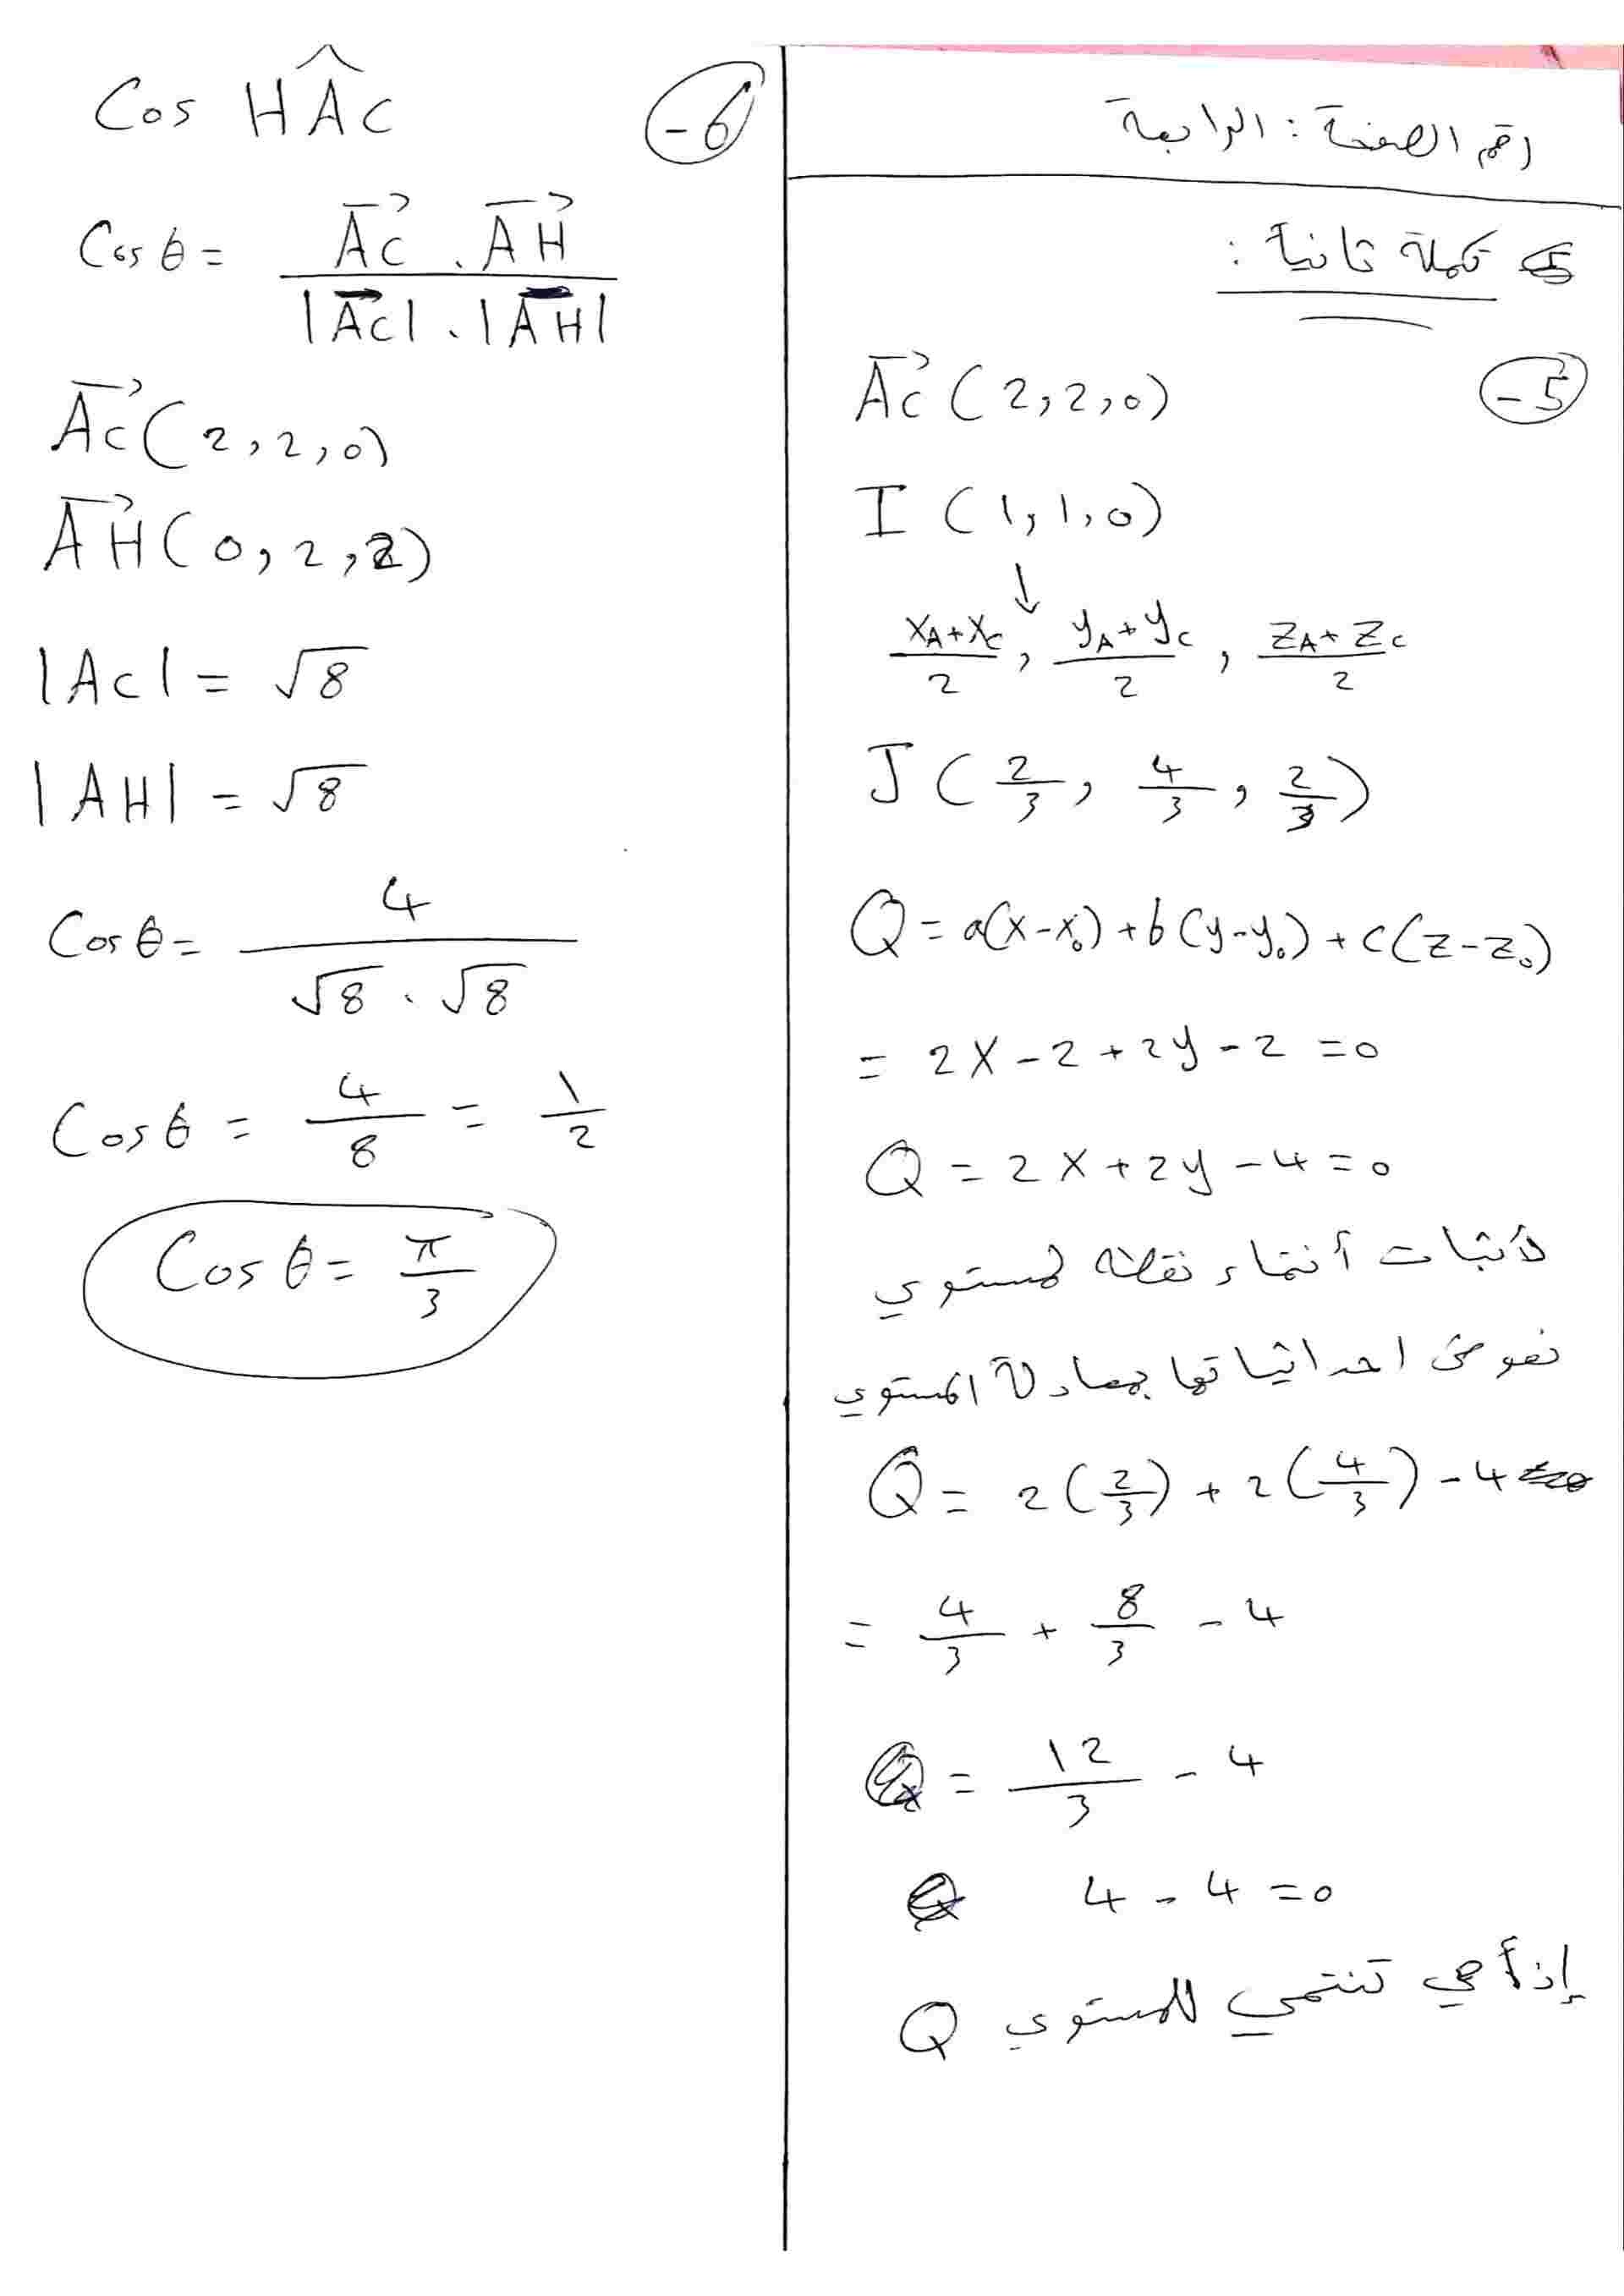 رقم الصفحة : الرابعة
تكملة ثانية :
5-
AC→ (2,2,0)
I (1,1,0)
↓
(x_A+x_C)/2 , (y_A+y_C)/2 , (z_A+z_C)/2
J ( 2/3 , 4/3 , 2/3 )
Q = a(x-x₀) + b(y-y₀) + c(z-z₀)
= 2x - 2 + 2y - 2 = 0
Q = 2x + 2y - 4 = 0
لأثبات أنتماء نقطة لمستوي
نعوض احداثياتها بمعادلة المستوي
Q = 2(2/3) + 2(4/3) - 4
= 4/3 + 8/3 - 4
= 12/3 - 4
4 - 4 = 0
إذاً هي تنتمي للمستوي Q
6-
Cos HÂC
Cos θ = (AC→ . AH→) / (|AC→| . |AH→|)
AC→ (2,2,0)
AH→ (0,2,2)
|AC| = √8
|AH| = √8
Cos θ = 4 / (√8 . √8)
Cos θ = 4/8 = 1/2
Cos θ = π/3